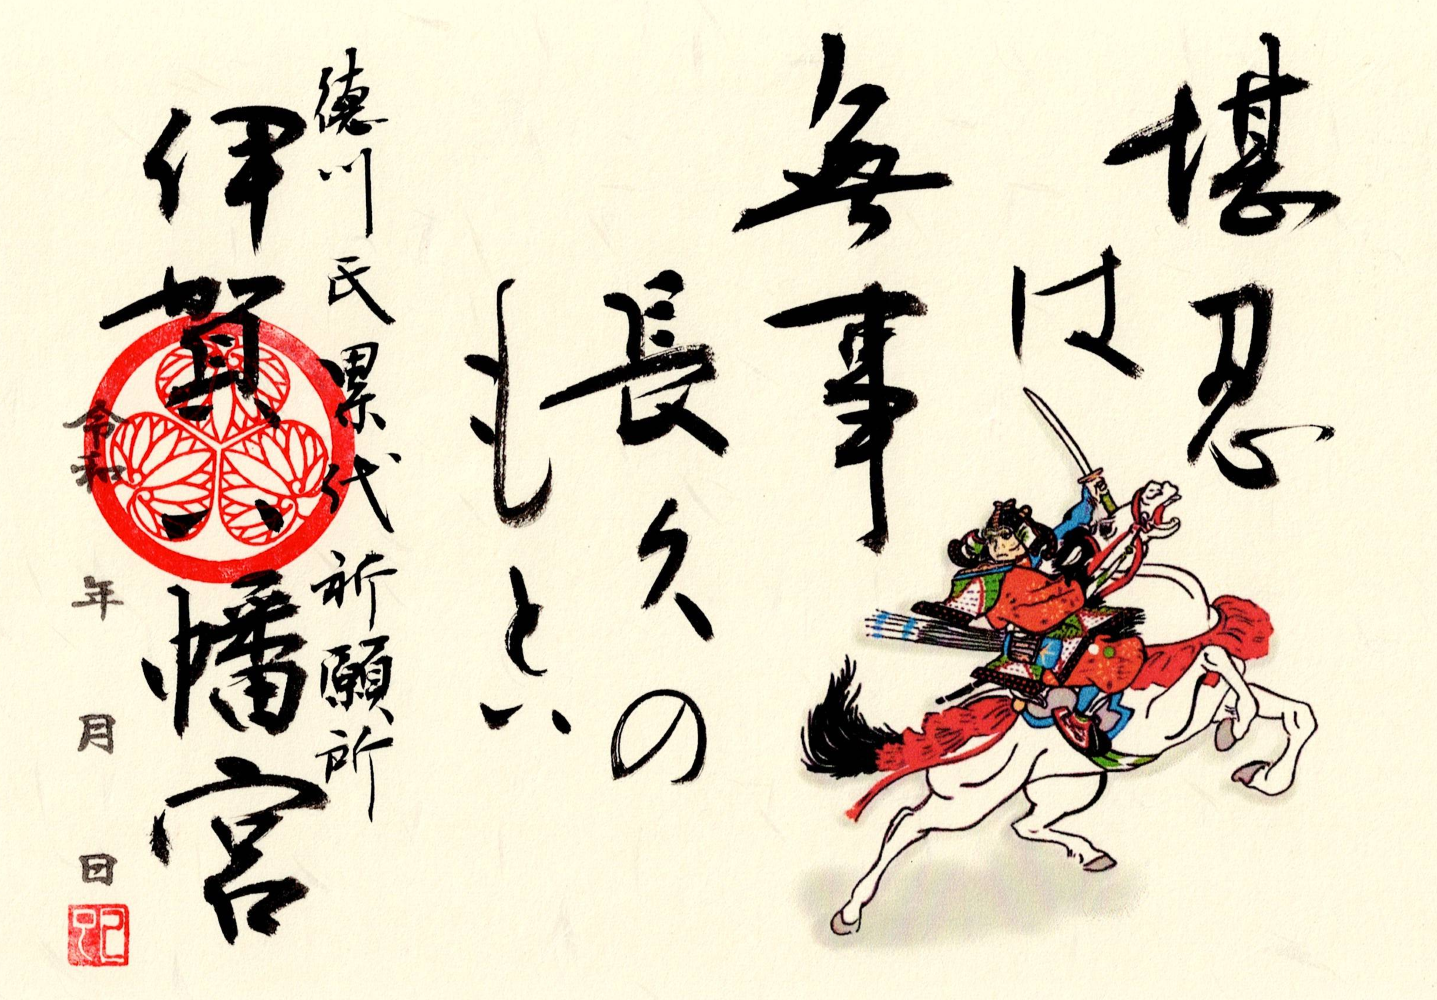 堪忍
は
無事
長久の
もとい
徳川氏累代祈願所
伊賀八幡宮
令和 年 月 日